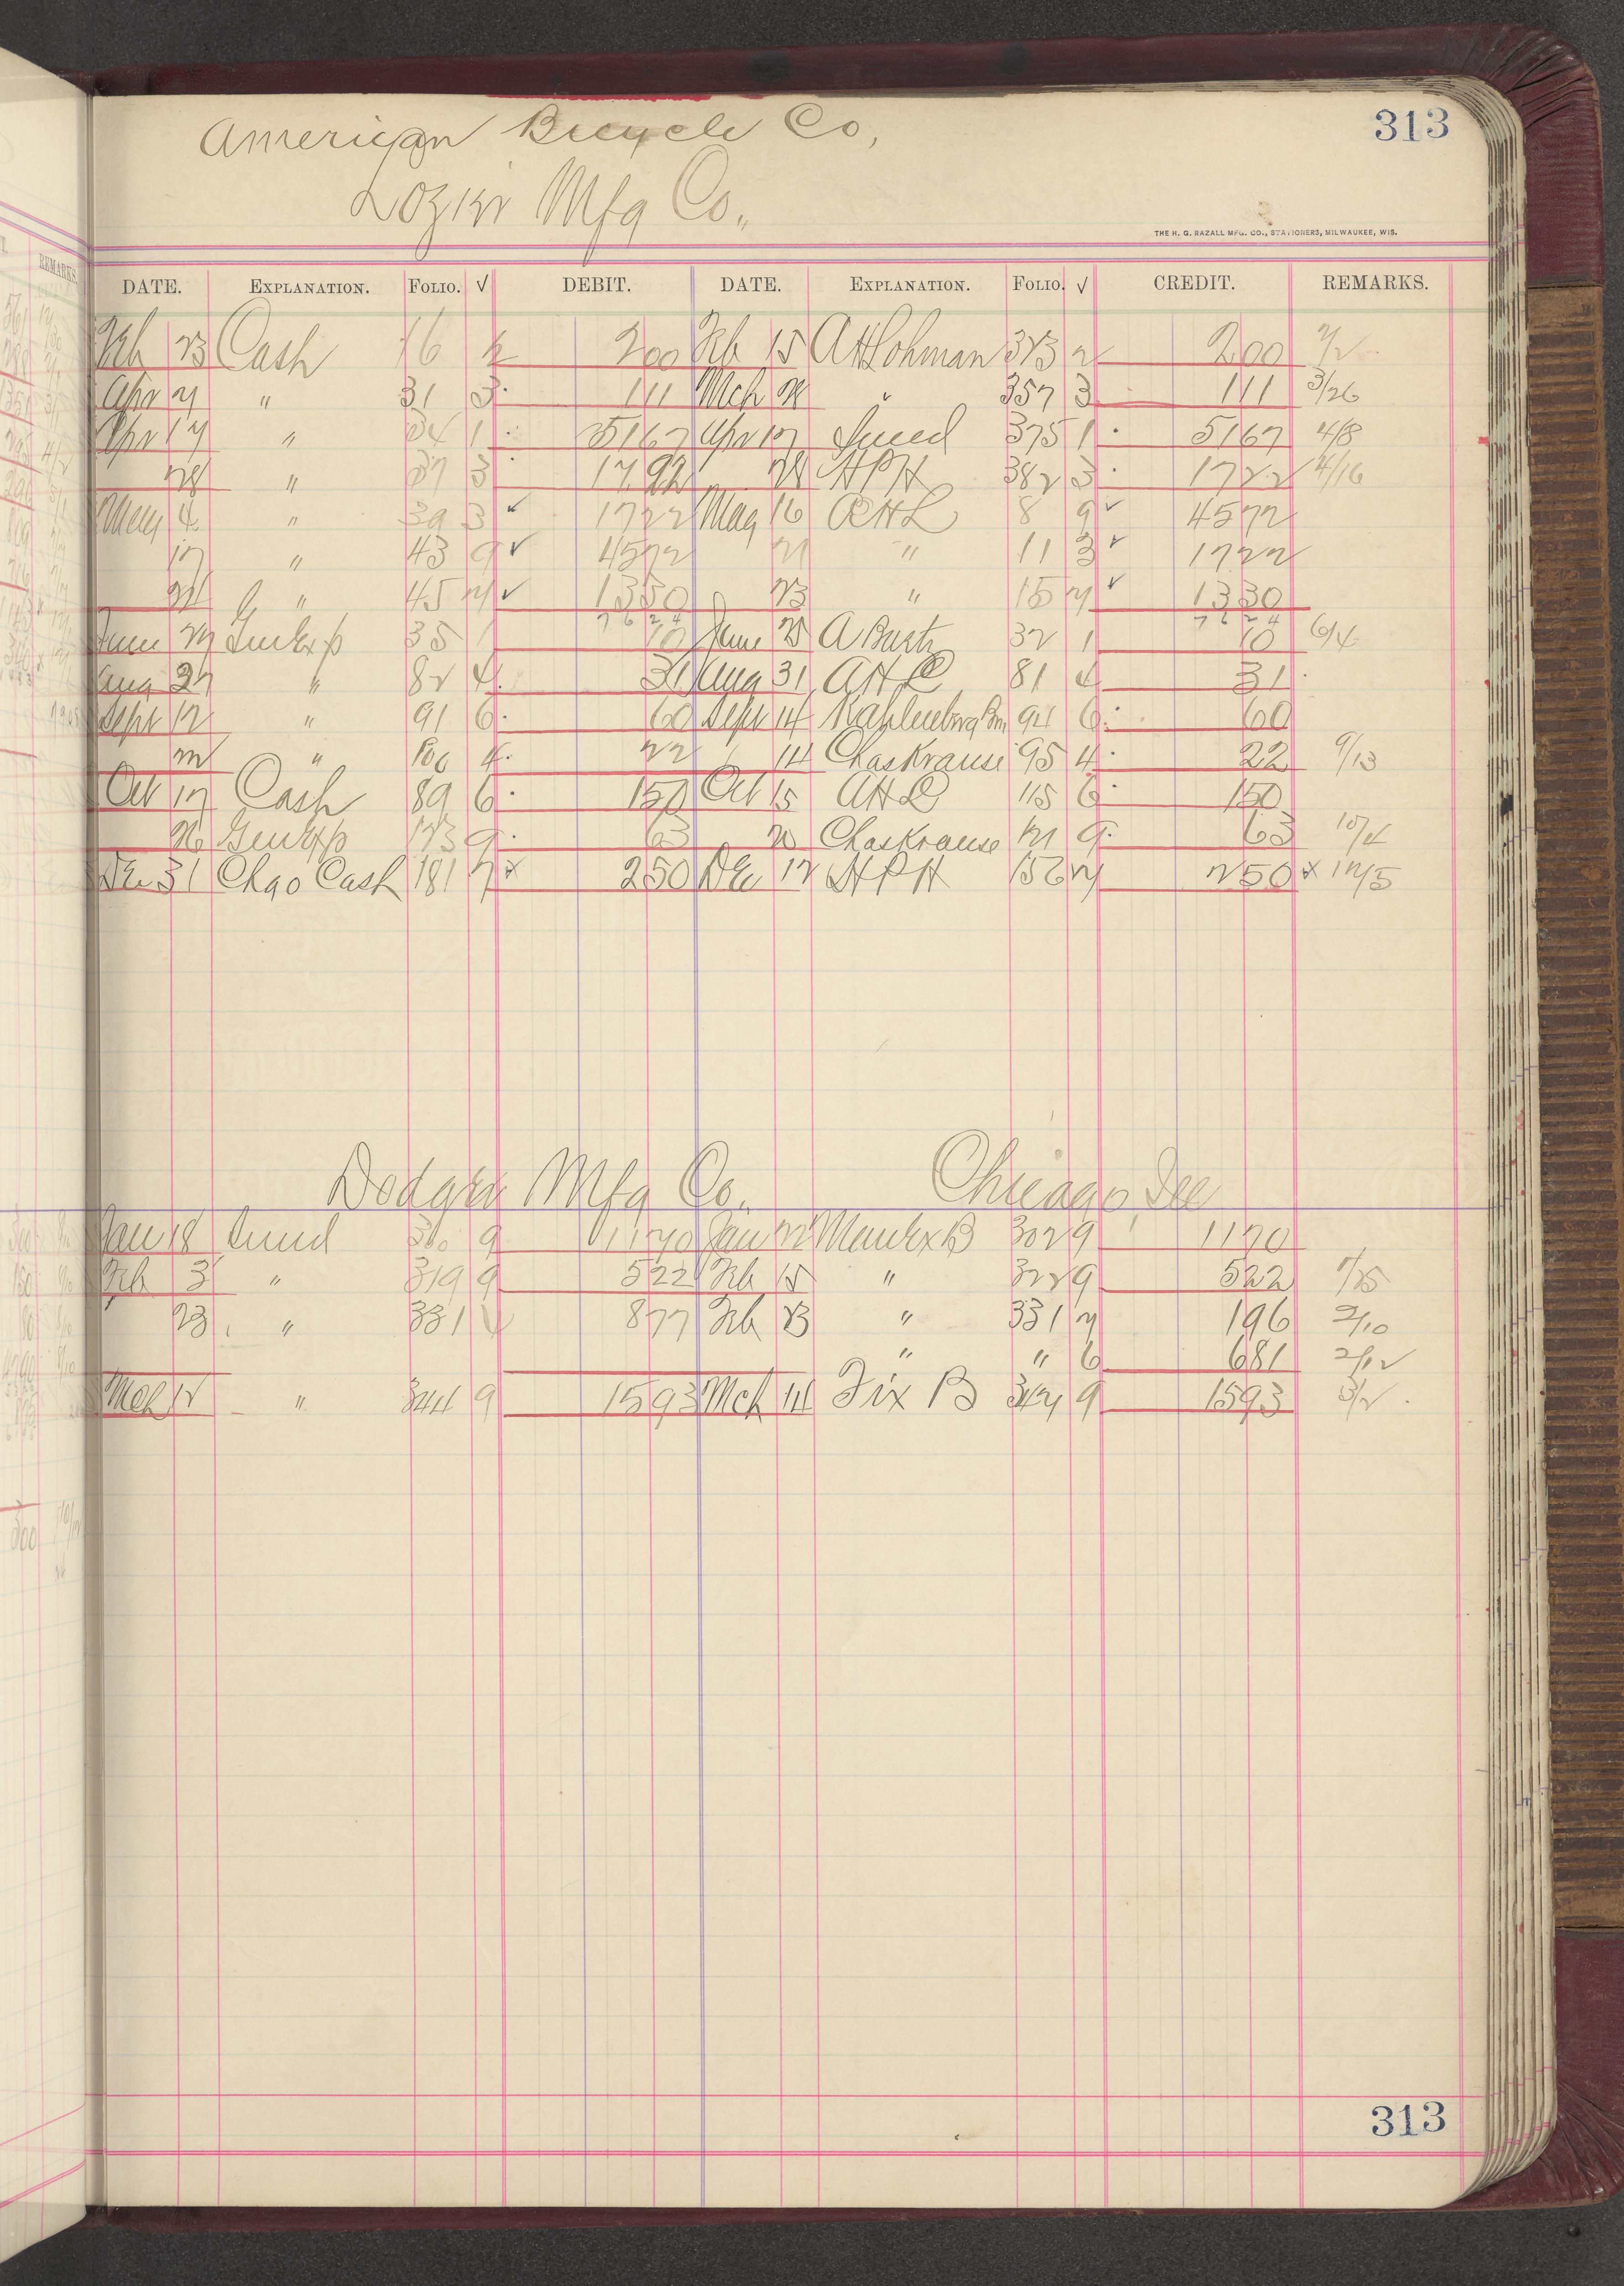 313
American Bicycle Co,
Lozier Mfg Co.,
THE H. G. RAZALL MFG. CO., STATIONERS, MILWAUKEE, WIS.
REMARKS.
DATE. EXPLANATION. FOLIO. √ DEBIT. DATE. EXPLANATION. FOLIO. √ CREDIT. REMARKS.
Feb 23 Cash 16 2 200 Feb 15 AHLohman 323 2 200 2/2
Apr 2 " 31 3 111 Mch 357 3 111 3/26
Apr 17 " 34 1 5167 Apr 17 Sund 375 1 5167 4/8
28 " 37 3 1722 28 HPH 382 3 1722 4/16
May 4 " 39 3 √ 1722 May 16 AHL 8 9 √ 4572
17 " 43 9 √ 4572 21 " 11 3 √ 1722
" 45 2 √ 1330 23 " 15 2 √ 1330
7624 7624
June Gen Exp 35 1 10 June A Bartz 32 1 10 6/4
Aug 27 " 82 4 31 Aug 31 AHL 81 4 31
Sept 12 " 91 6 60 Sept 14 Kahlenberg Bro 94 6 60
" 100 4 22 14 Chas Krause 95 4 22 9/13
Oct 17 Cash 89 6 150 Oct 15 AHL 115 6 150
26 Gen Exp 123 9 63 Chas Krause 121 9 63 10/4
Dec 31 Chgo Cash 181 250 Dec 12 HPH 156 2 250 x 12/5
Dodge Mfg Co., Chicago Ill
Jan 18 Sund 9 1170 Jan Man Ex B 302 9 1170
Feb 3 " 319 9 522 Feb 15 " 322 9 522 1/25
23 " 331 877 Feb 23 " 331 2 196 2/10
" " 6 681 2/12
Mch 12 " 344 9 1593 Mch 14 Fix B 347 9 1593 3/2
313